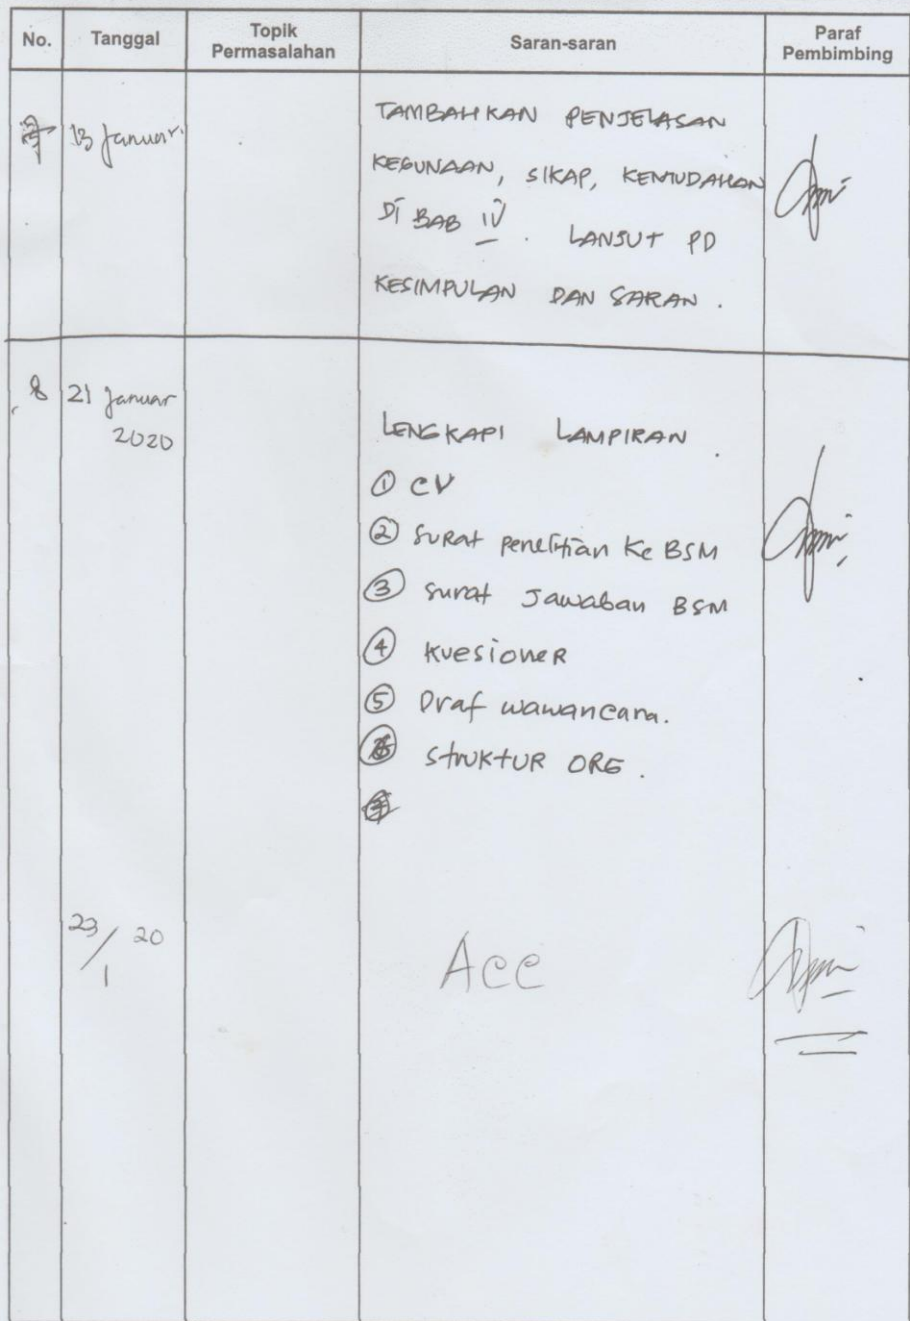 No. Tanggal Topik Permasalahan Saran-saran Paraf Pembimbing
13 Januari TAMBAHKAN PENJELASAN
KEGUNAAN, SIKAP, KEMUDAHAN
Di BAB IV . LANJUT PD
KESIMPULAN DAN SARAN .
8 21 Januar
2020
LENGKAPI LAMPIRAN .
① CV
② SURAt penelitian Ke BSM
③ surat Jawaban BSM
④ KuesioneR
⑤ Draf wawancara.
StrukTUR ORG .
23/1 20 Acc